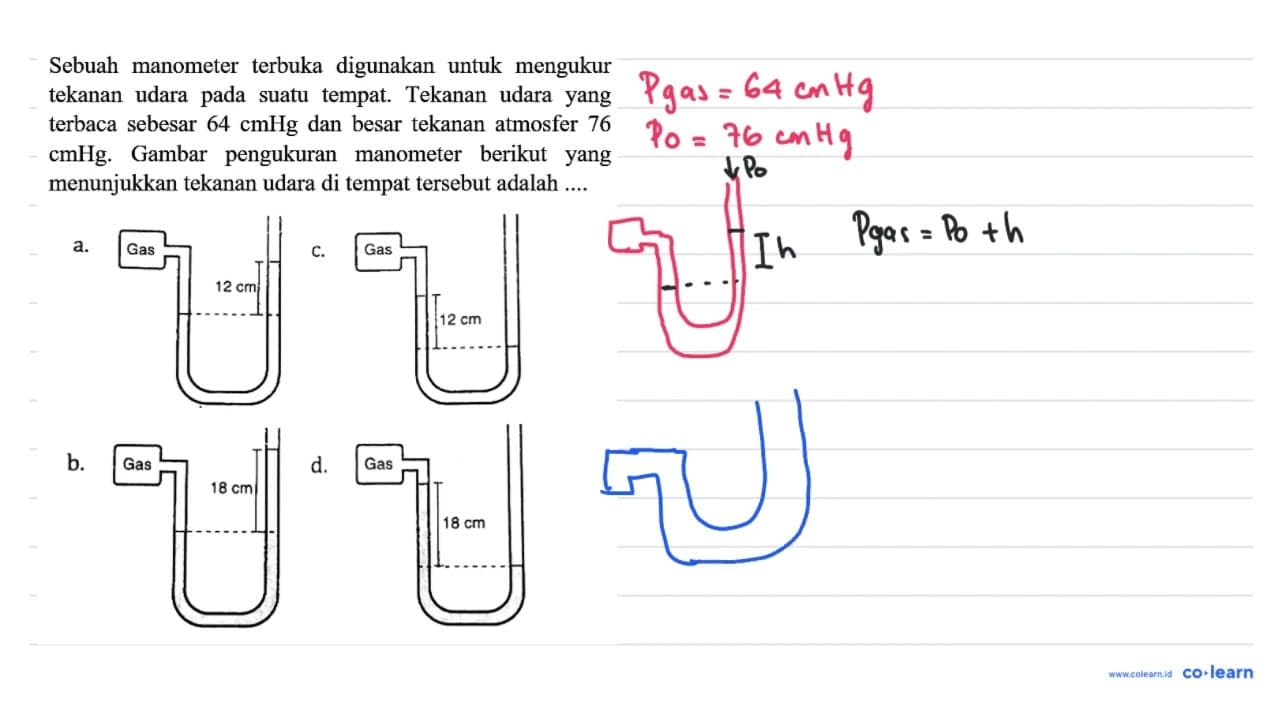 Sebuah manometer terbuka digunakan untuk mengukur
tekanan udara pada suatu tempat. Tekanan udara yang
terbaca sebesar 64 cmHg dan besar tekanan atmosfer 76
cmHg. Gambar pengukuran manometer berikut yang
menunjukkan tekanan udara di tempat tersebut adalah ....
Pgas = 64 cmHg
Po = 76 cmHg
↓Po
h
Pgas = Po + h
a.
Gas
12 cm
c.
Gas
12 cm
b.
Gas
18 cm
d.
Gas
18 cm
www.colearn.id co·learn